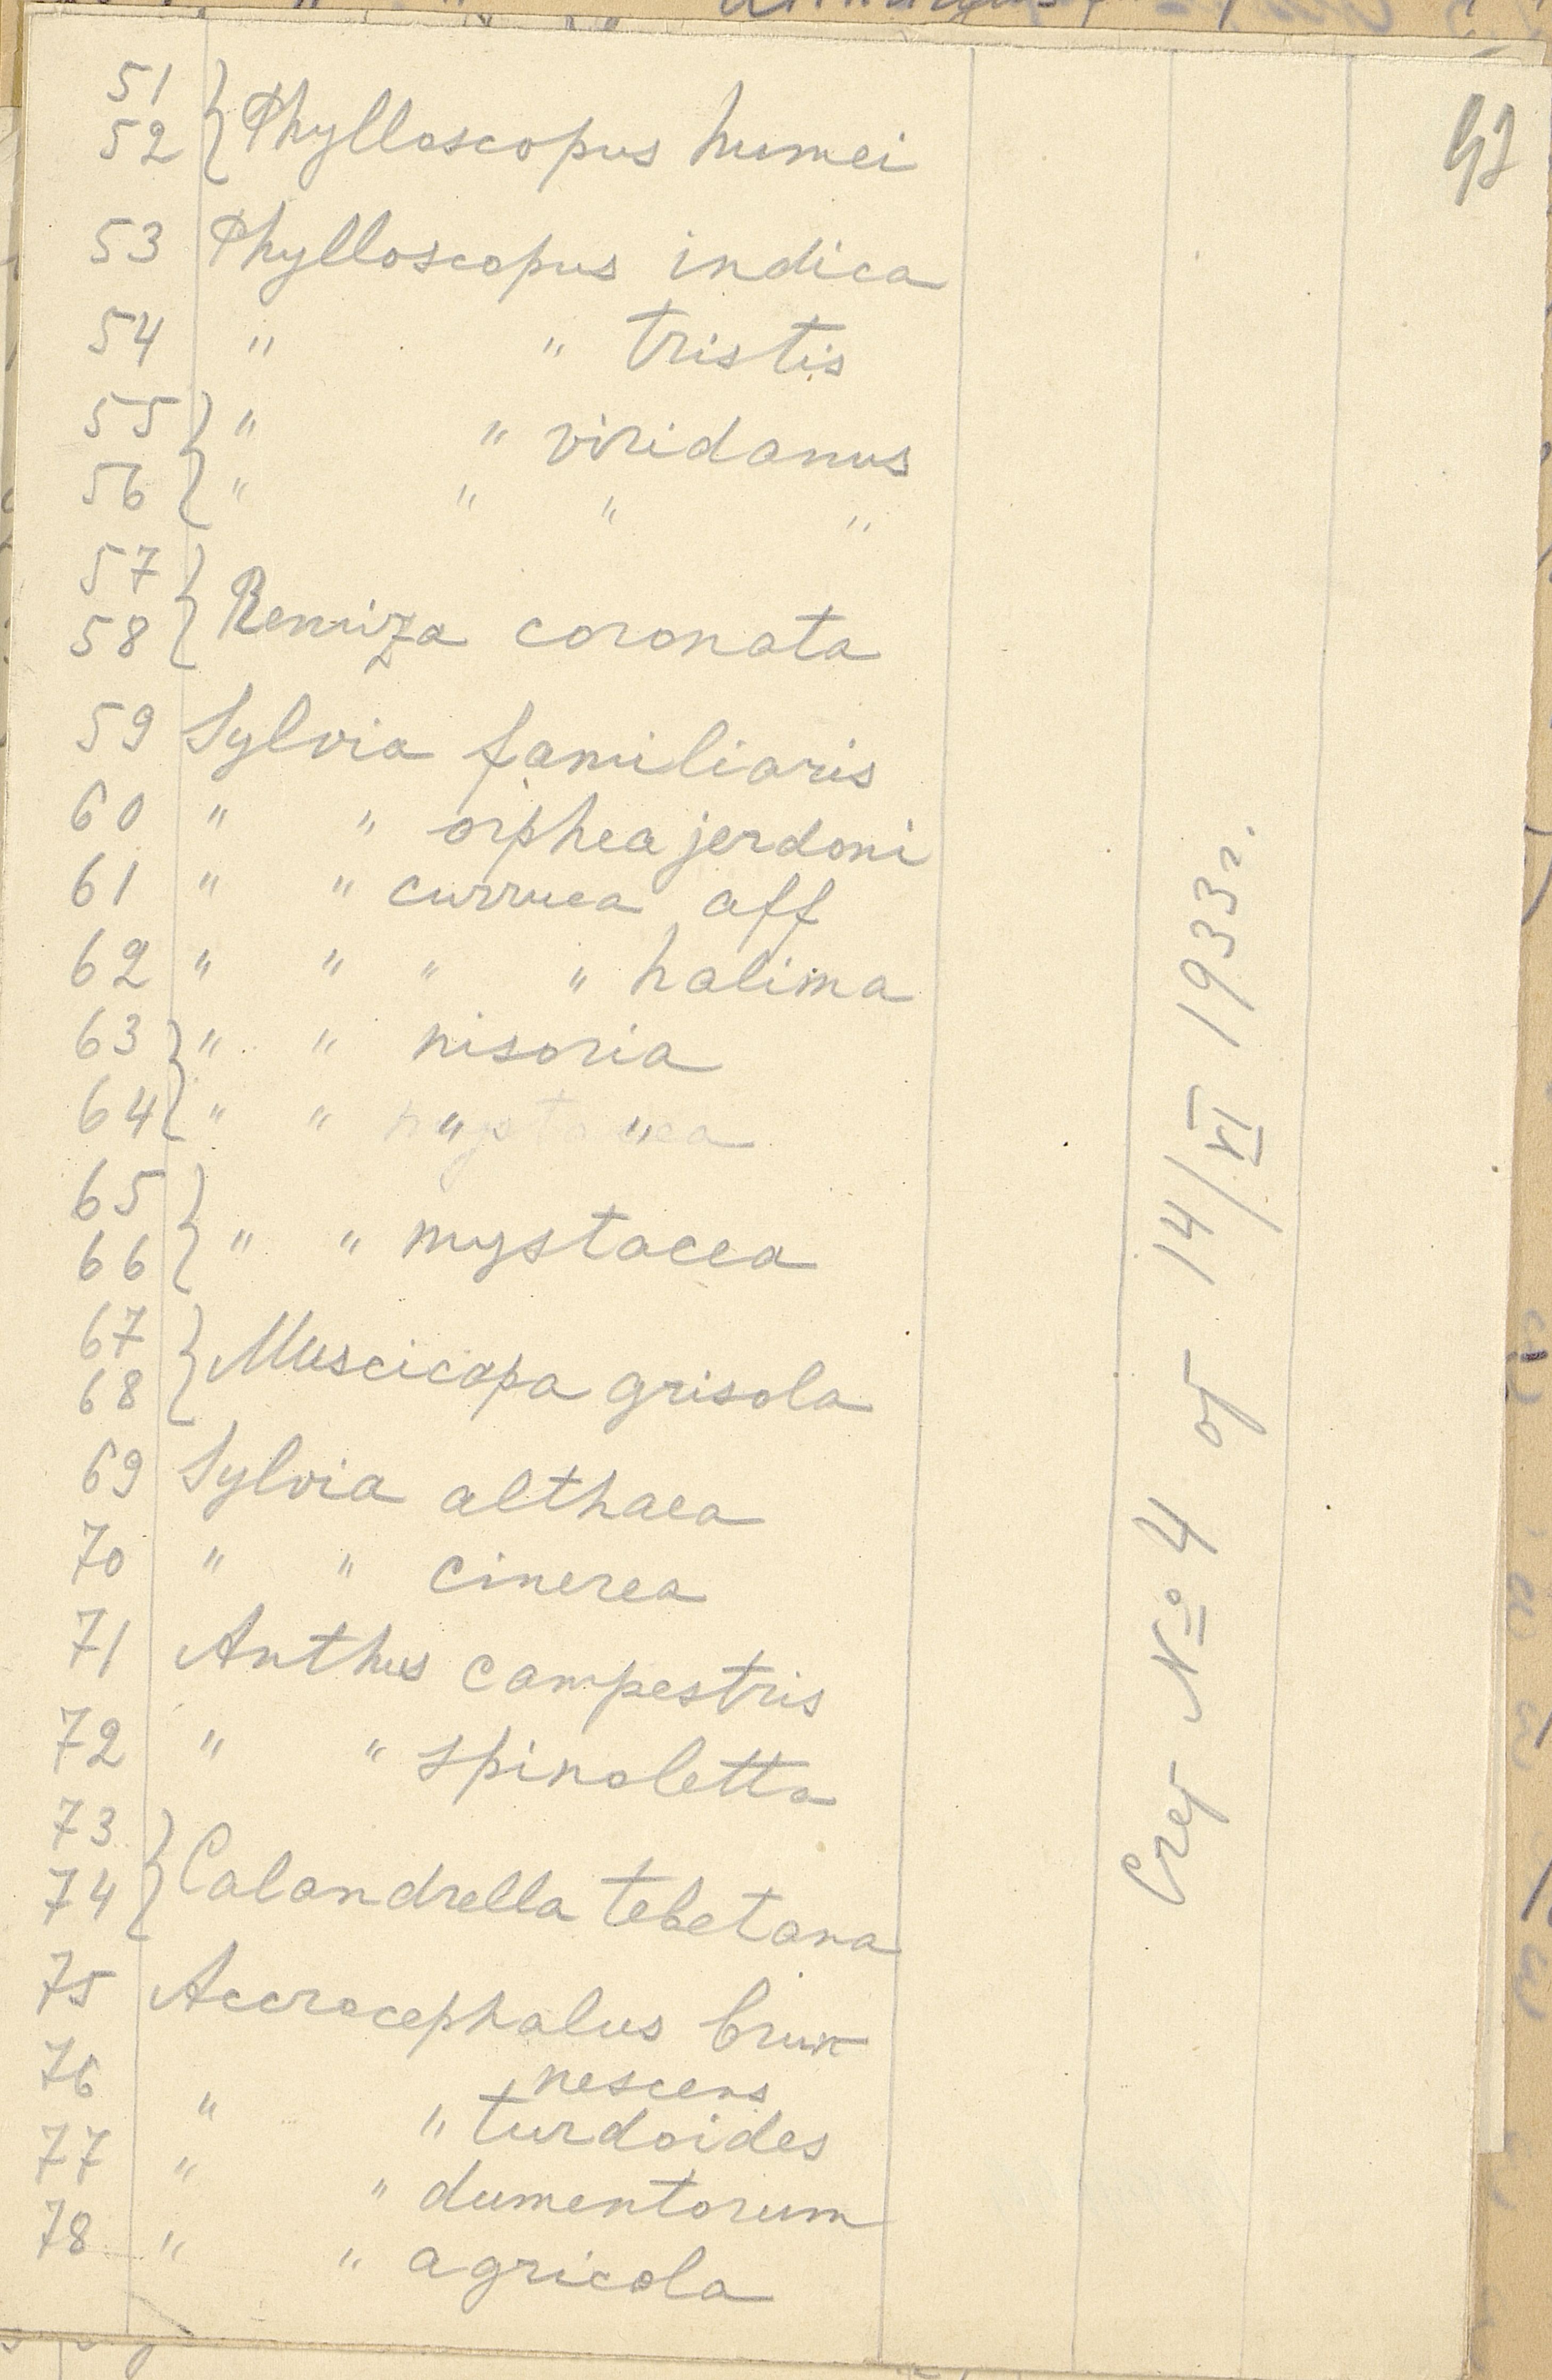 51
52 } Phylloscopus humei
53 Phylloscopus indica
54 " " tristis
55 } " " viridanus
56 } " " " "
57
58 } Remiza coronata
59 Sylvia familiaris
60 " " orphea jerdoni
61 " " curruca aff
62 " " " " halima
63 } " " nisoria
64 } " " " "
65
66 } " " mystacea
67
68 } Muscicapa grisola
69 Sylvia althaea
70 " " cinerea
71 Anthus campestris
72 " " spinoletta
73
74 } Calandrella tebetana
75 Accrocephalus brun
nescens
76 " " turdoides
77 " " dumentorum
78 " " agricola
Счет № 4 от 14/VI 1933 г.